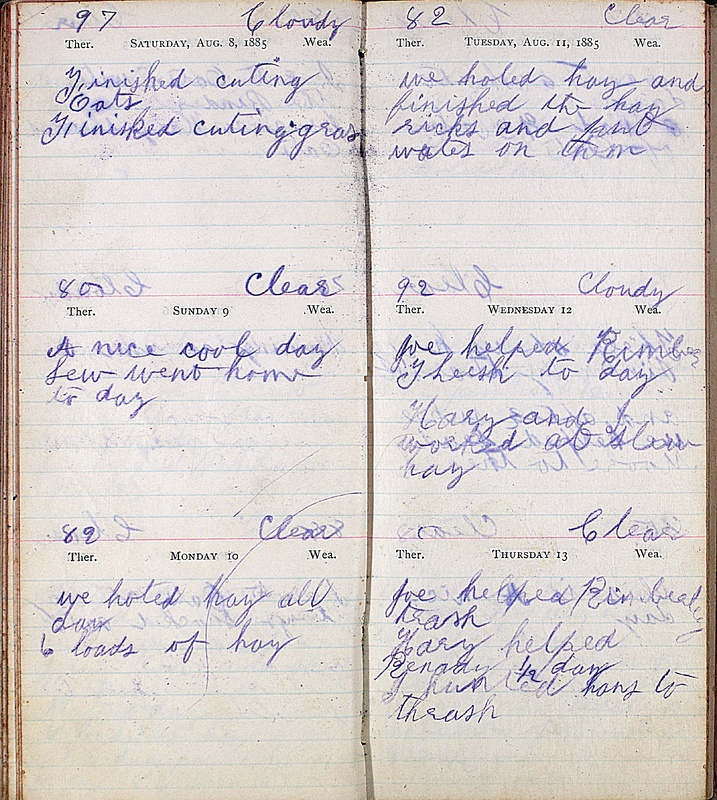 97 Cloudy
Ther. SATURDAY, AUG. 8, 1885 Wea.
Finished cuting
Oats
Finished cuting gras
80 Clear
Ther. SUNDAY 9 Wea.
A nice cool day
Lew went home
to day
82 Clear
Ther. MONDAY 10 Wea.
we holed hay all
day
6 loads of hay
82 Clear
Ther. TUESDAY, AUG. 11, 1885 Wea.
we holed hay and
finished the hay
ricks and put
wates on them
92 Cloudy
Ther. WEDNESDAY 12 Wea.
Joe helped
Thresh to day
Hary and I
worked at
hay
Clear
Ther. THURSDAY 13 Wea.
Joe helped
thrash
Hary helped
1/2 day
I hunted to
thrash